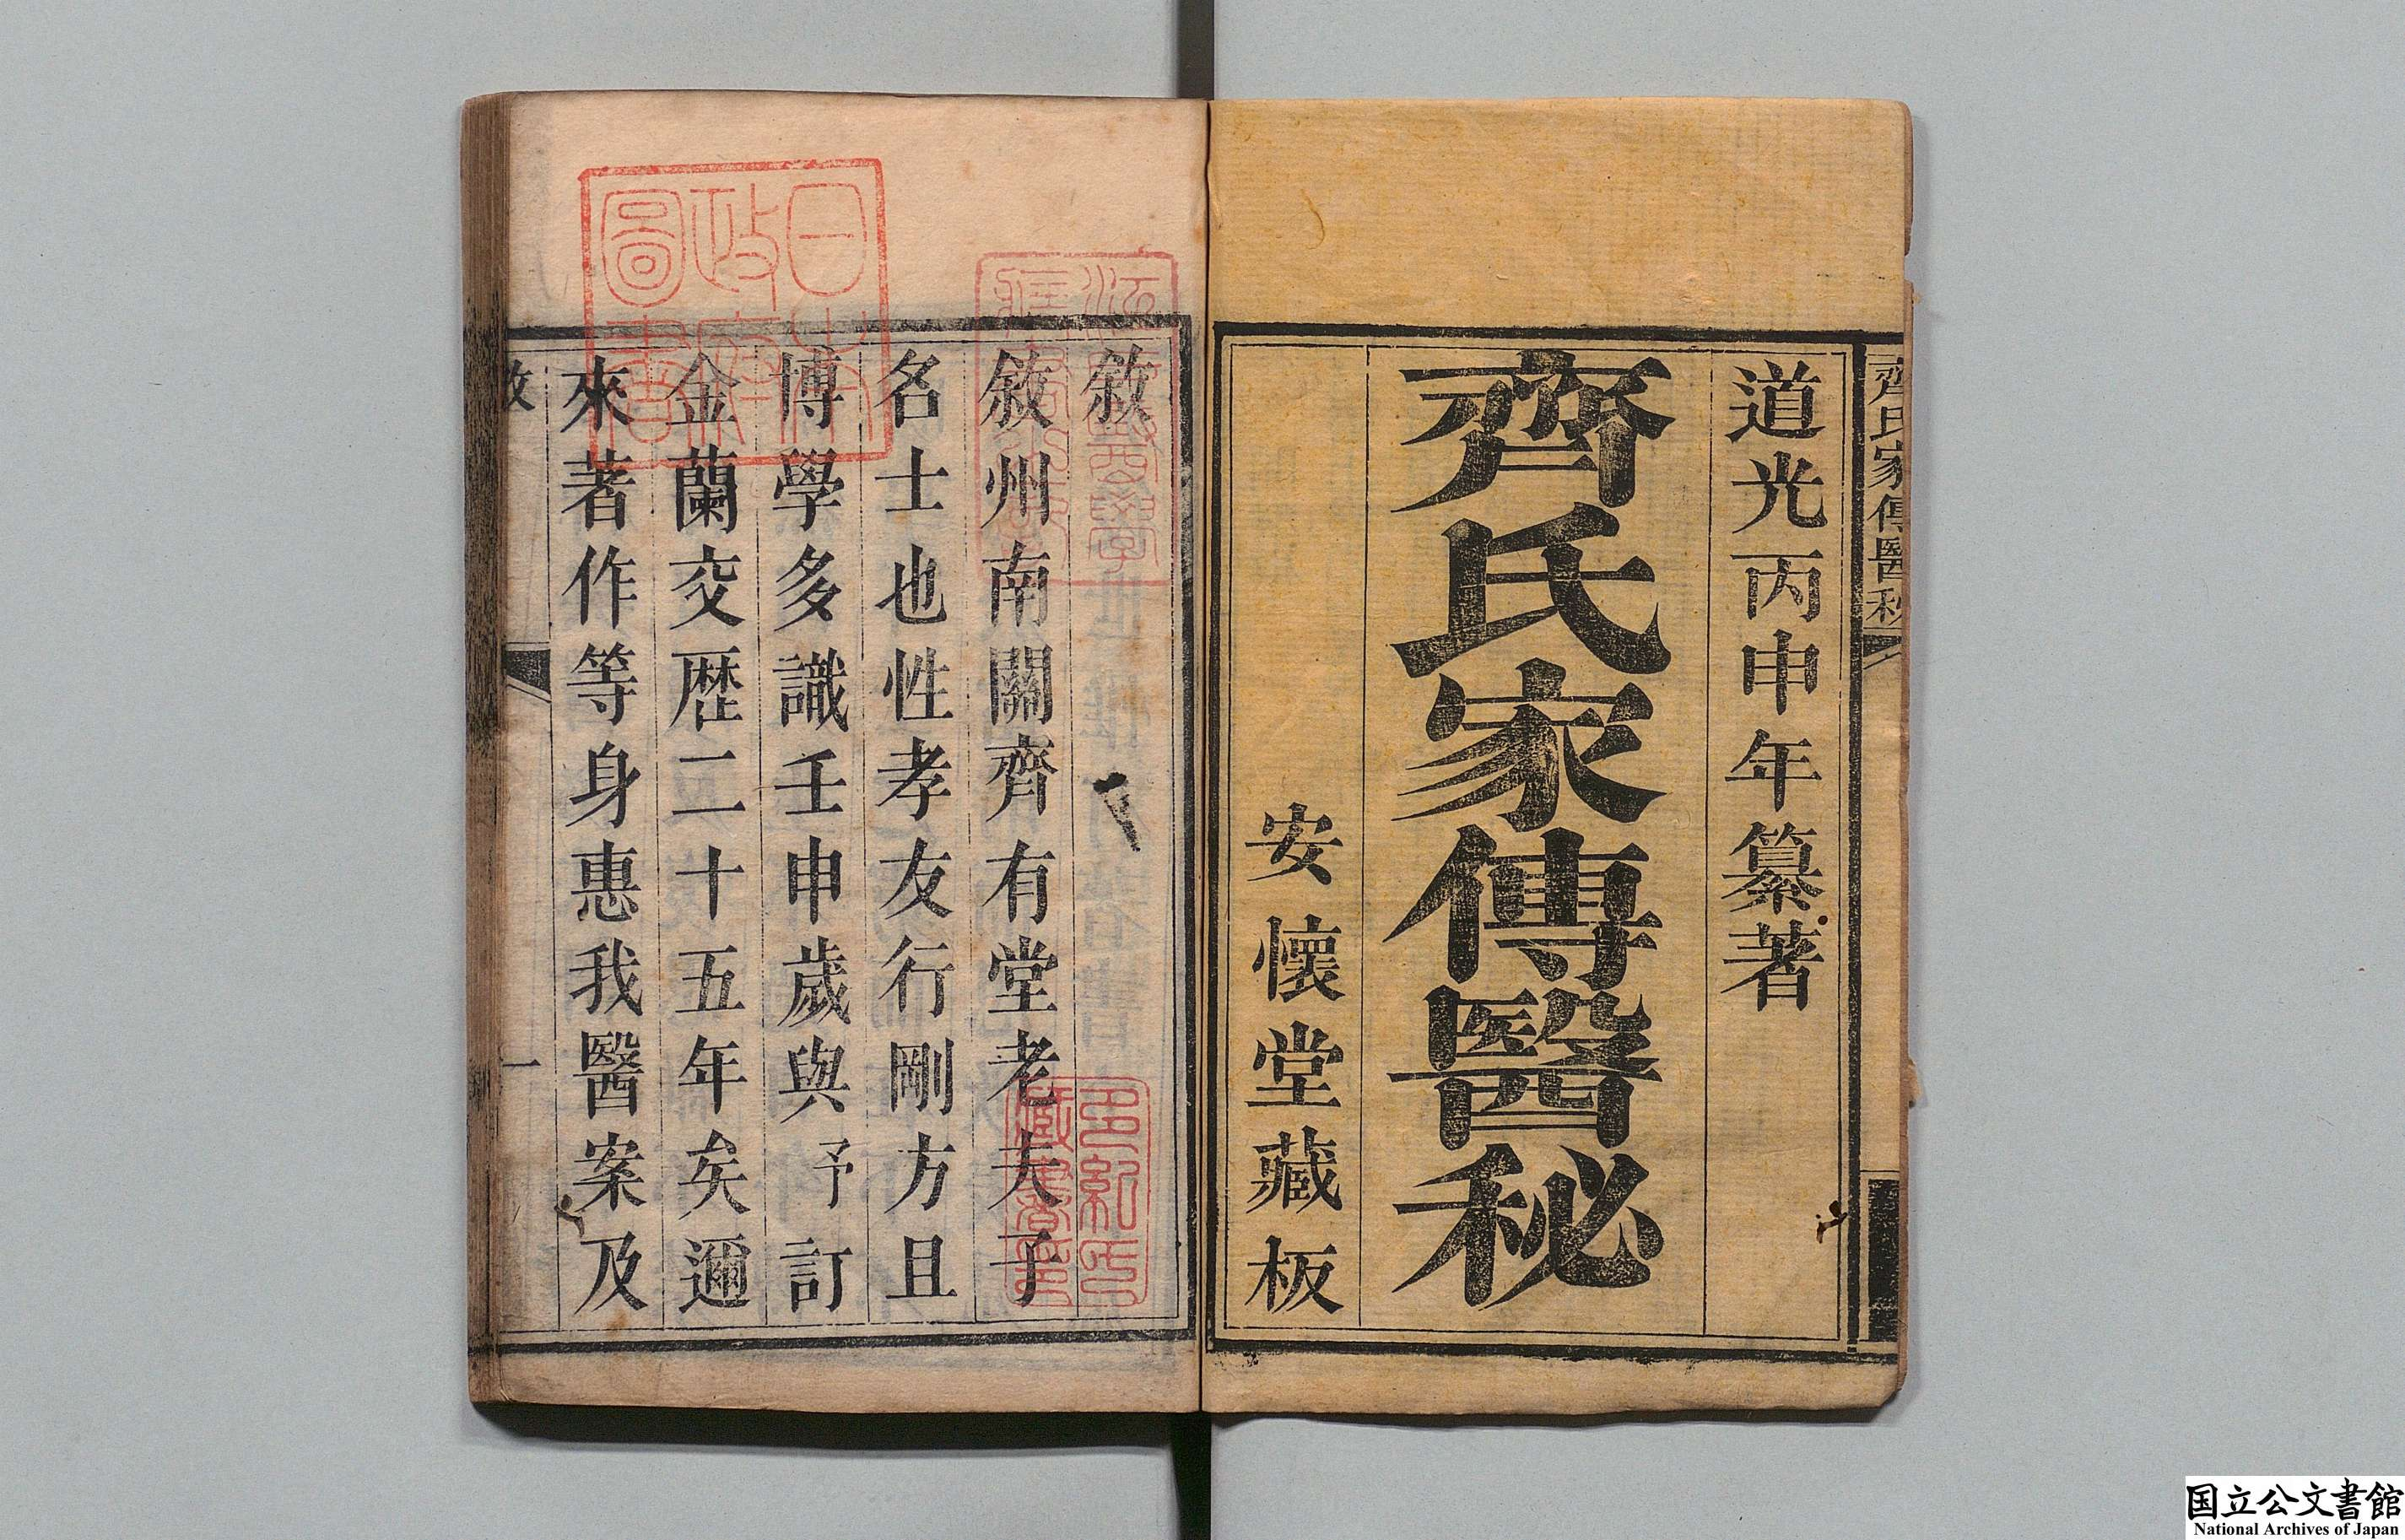 齊氏家傳醫秘
道光丙申年纂著
齊氏家傳醫秘
安懷堂藏板
敘
敘州南關齊有堂老夫子
名士也性孝友行剛方且
博學多識壬申歲與予訂
金蘭交歴二十五年矣邇
來著作等身惠我醫案及
敘
一
日本
政府
圖書
多紀氏
藏書印
国立公文書館
National Archives of Japan